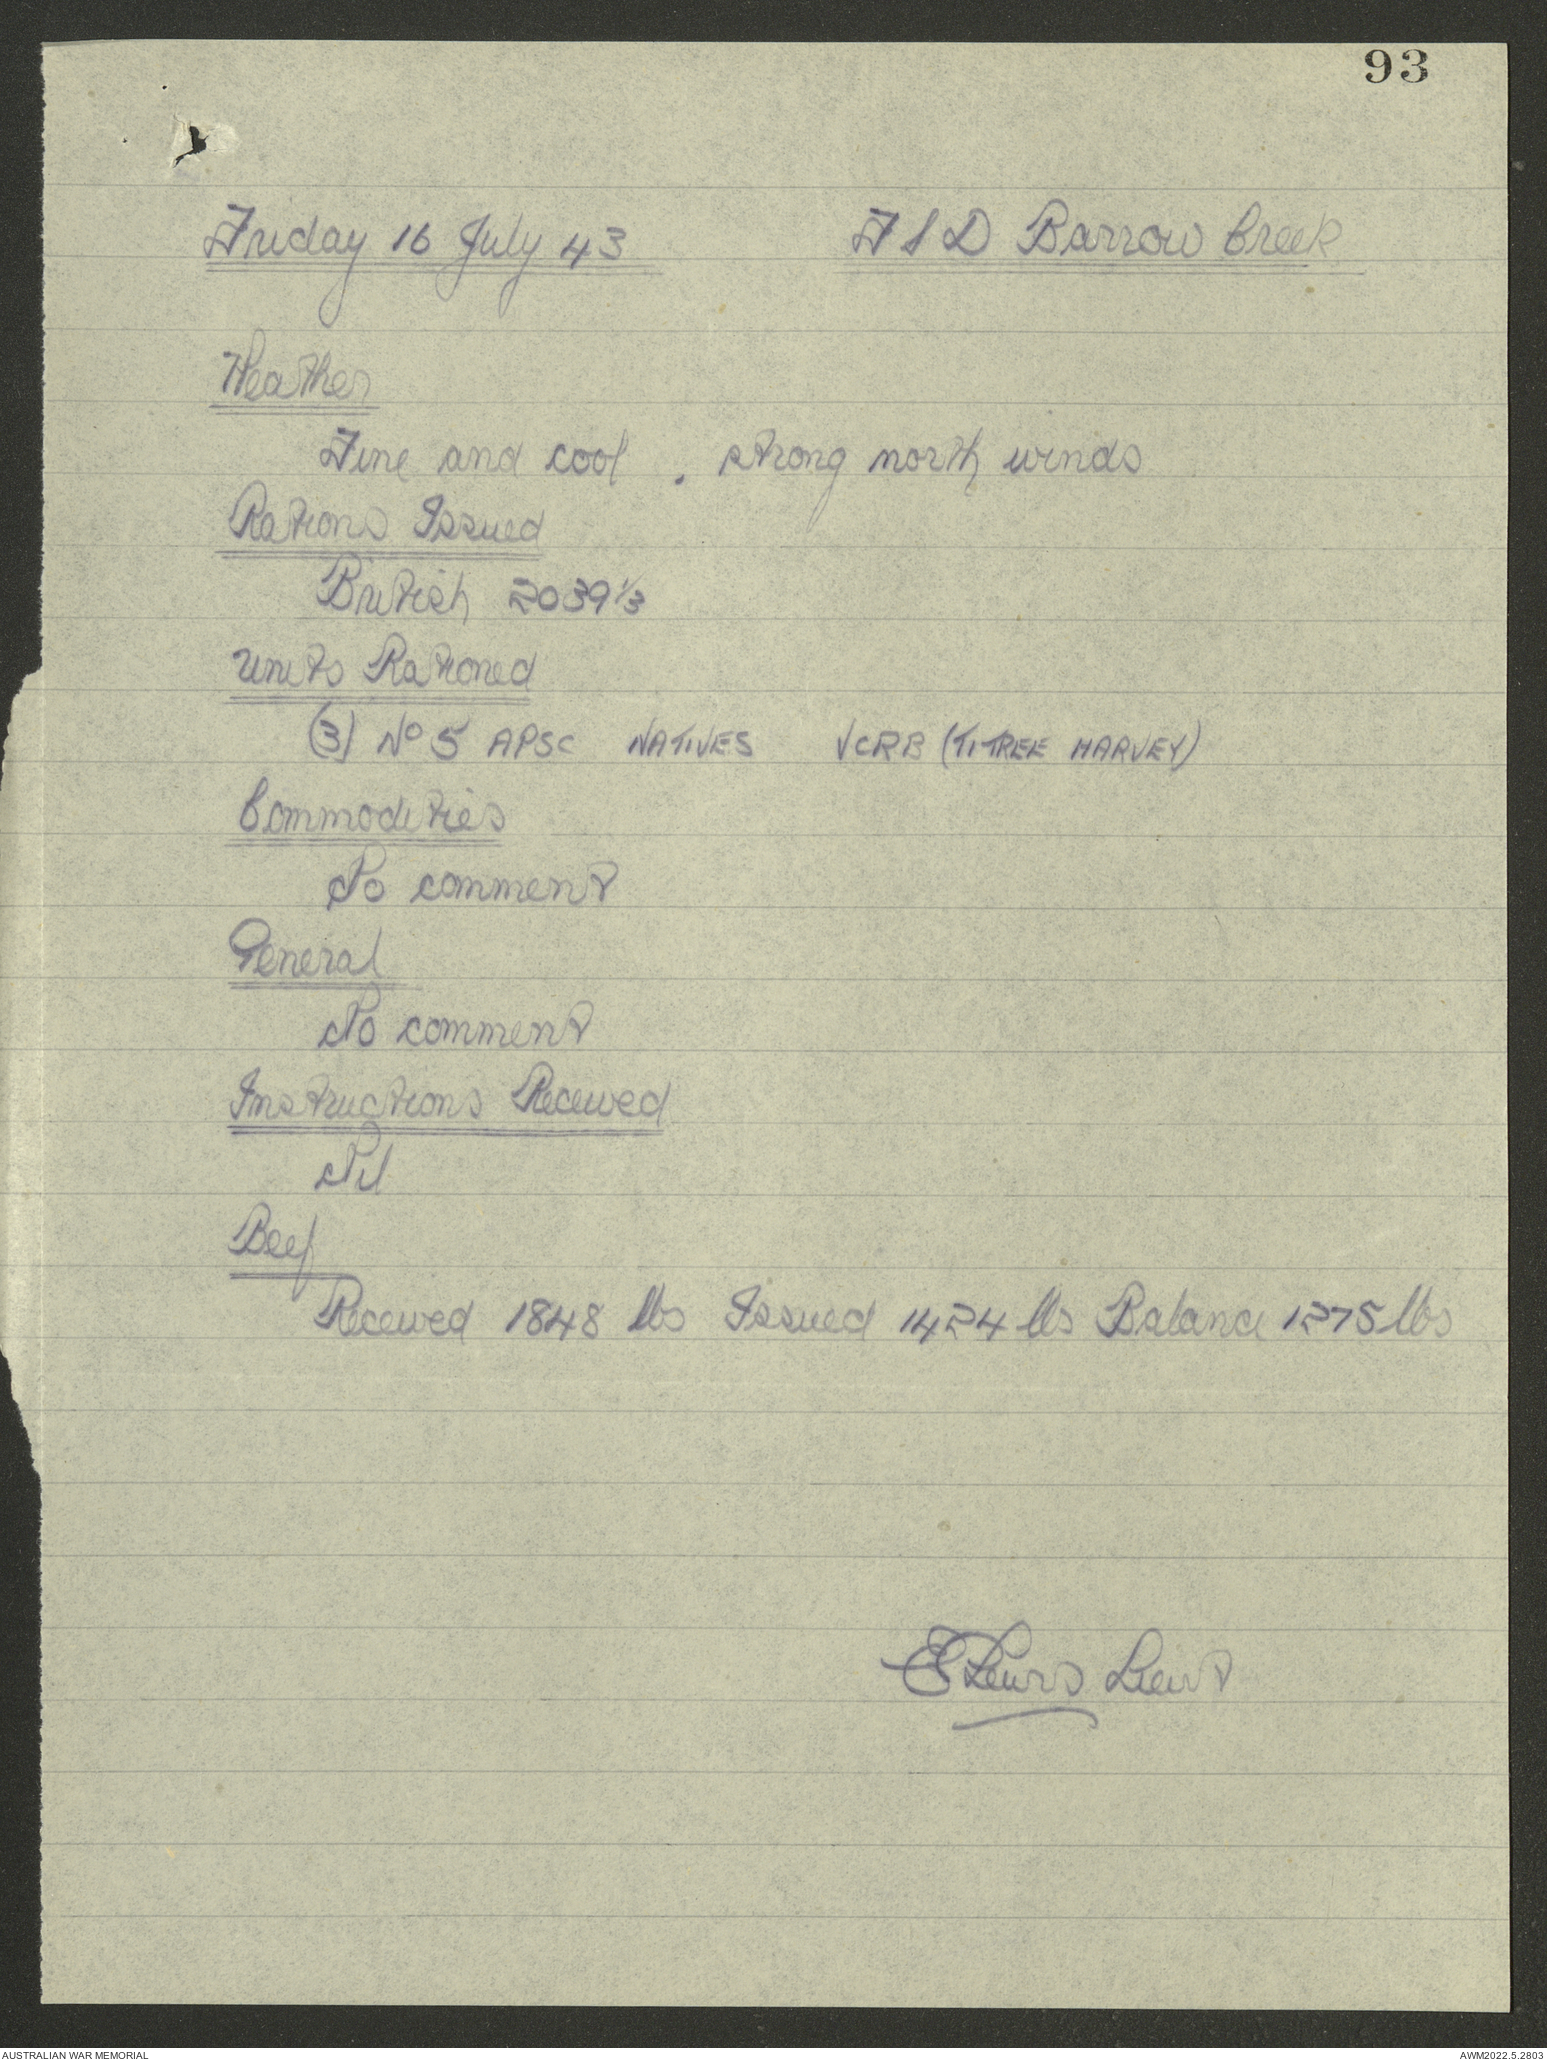 93
Friday 16 July 43 F S D Barrow Creek
Weather
Fine and cool . strong north winds
Rations Issued
British 2039 1/3
Units Rationed
(3) No 5 APSC NATIVES VCRB (TITREE HARVEY)
Commodities
No comment
General
No comment
Instructions Received
Nil
Beef
Received 1848 lbs Issued 1424 lbs Balance 1275 lbs
E Lewis Lieut
AUSTRALIAN WAR MEMORIAL AWM2022.5.2803